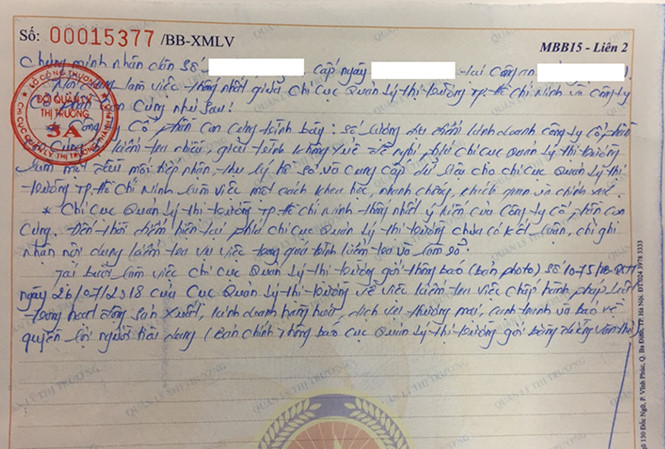 Số: 00015377 /BB-XMLV
MBB15 - Liên 2
Chứng minh nhân dân số cấp ngày tại Công an
Nội dung làm việc thống nhất giữa Chi Cục Quản Lý thị trường TP. Hồ Chí Minh và Công ty
Cổ phần Con Cưng như sau:
* Công ty Cổ phần Con Cưng trình bày: số lượng địa điểm kinh doanh công ty Cổ phần
Con Cưng kiểm tra nhiều, giải trình không xuể đề nghị phía Chi Cục Quản Lý thị trường
làm một đầu mối tiếp nhận, thụ lý hồ sơ và cung cấp dữ liệu cho Chi Cục Quản Lý thị
trường TP. Hồ Chí Minh làm việc một cách khoa học, nhanh chóng, khách quan và chính xác.
* Chi Cục Quản Lý thị trường TP. Hồ Chí Minh thống nhất ý kiến của Công ty Cổ phần Con
Cưng. Đến thời điểm hiện tại phía Chi Cục Quản Lý thị trường chưa có kết luận, chỉ ghi
nhận nội dung kiểm tra vụ việc trong quá trình kiểm tra và làm rõ.
Tại buổi làm việc Chi Cục Quản Lý thị trường gởi thông báo (bản photo) số
ngày 26/07/2018 của Cục Quản Lý thị trường về việc kiểm tra việc chấp hành pháp luật
trong hoạt động sản xuất, kinh doanh hàng hóa, dịch vụ thương mại, cạnh tranh và bảo vệ
quyền lợi người tiêu dùng (Bản chính thông báo Cục Quản Lý thị trường gởi bằng đường văn thư)
SỞ CÔNG THƯƠNG
ĐỘI QUẢN LÝ
THỊ TRƯỜNG
3A
CHI CỤC QUẢN LÝ THỊ TRƯỜNG
QUẢN LÝ THỊ TRƯỜNG
130 Đốc Ngữ, P. Vĩnh Phúc, Q. Ba Đình, TP. Hà Nội.